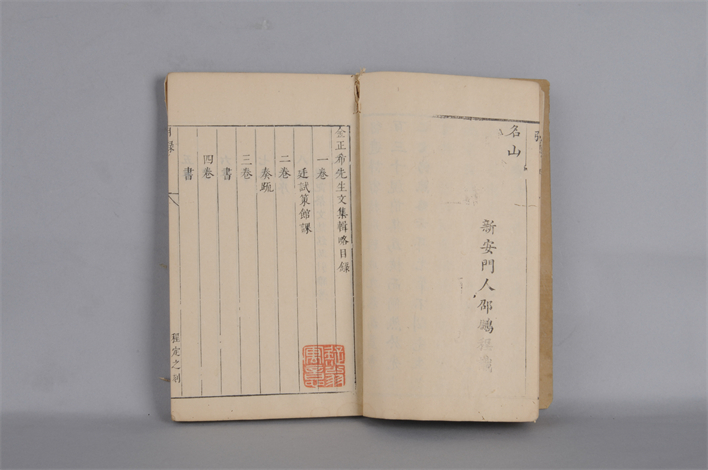 名山
新安門人邵鵬程
金正希先生文集輯略目錄
一卷
廷試策館課
二卷
奏疏
三卷
書
四卷
書
程憲之刻